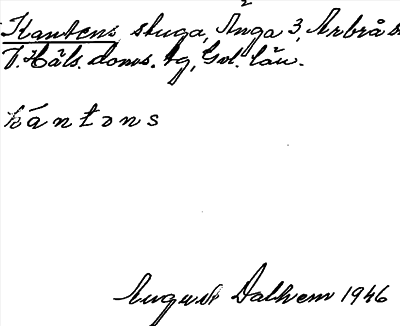 Kantens stuga, Änga 3, Arbrå s
V. Häls. doms. tg, Gvl. län.
kántəns
August Dalhem 1946